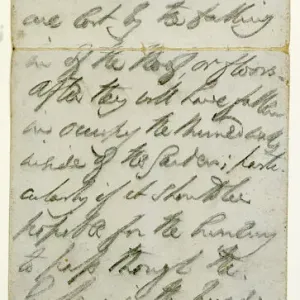 are lost by the falling
in of the Roof, or floors –
after they will have fallen
in occupy the ruined walls
inside of the Garden; parti
cularly if it should be
possible for the Enemy
to pass through the
in the